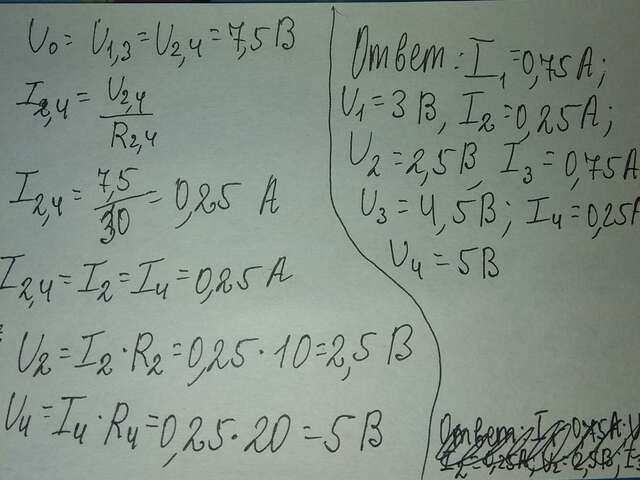 U₀ = U₁,₃ = U₂,₄ = 7,5 В
I₂,₄ = U₂,₄ / R₂,₄
I₂,₄ = 7,5 / 30 = 0,25 А
I₂,₄ = I₂ = I₄ = 0,25 А
U₂ = I₂ · R₂ = 0,25 · 10 = 2,5 В
U₄ = I₄ · R₄ = 0,25 · 20 = 5 В
Ответ: I₁ = 0,75 А;
U₁ = 3 В, I₂ = 0,25 А;
U₂ = 2,5 В, I₃ = 0,75 А
U₃ = 4,5 В; I₄ = 0,25 А
U₄ = 5 В